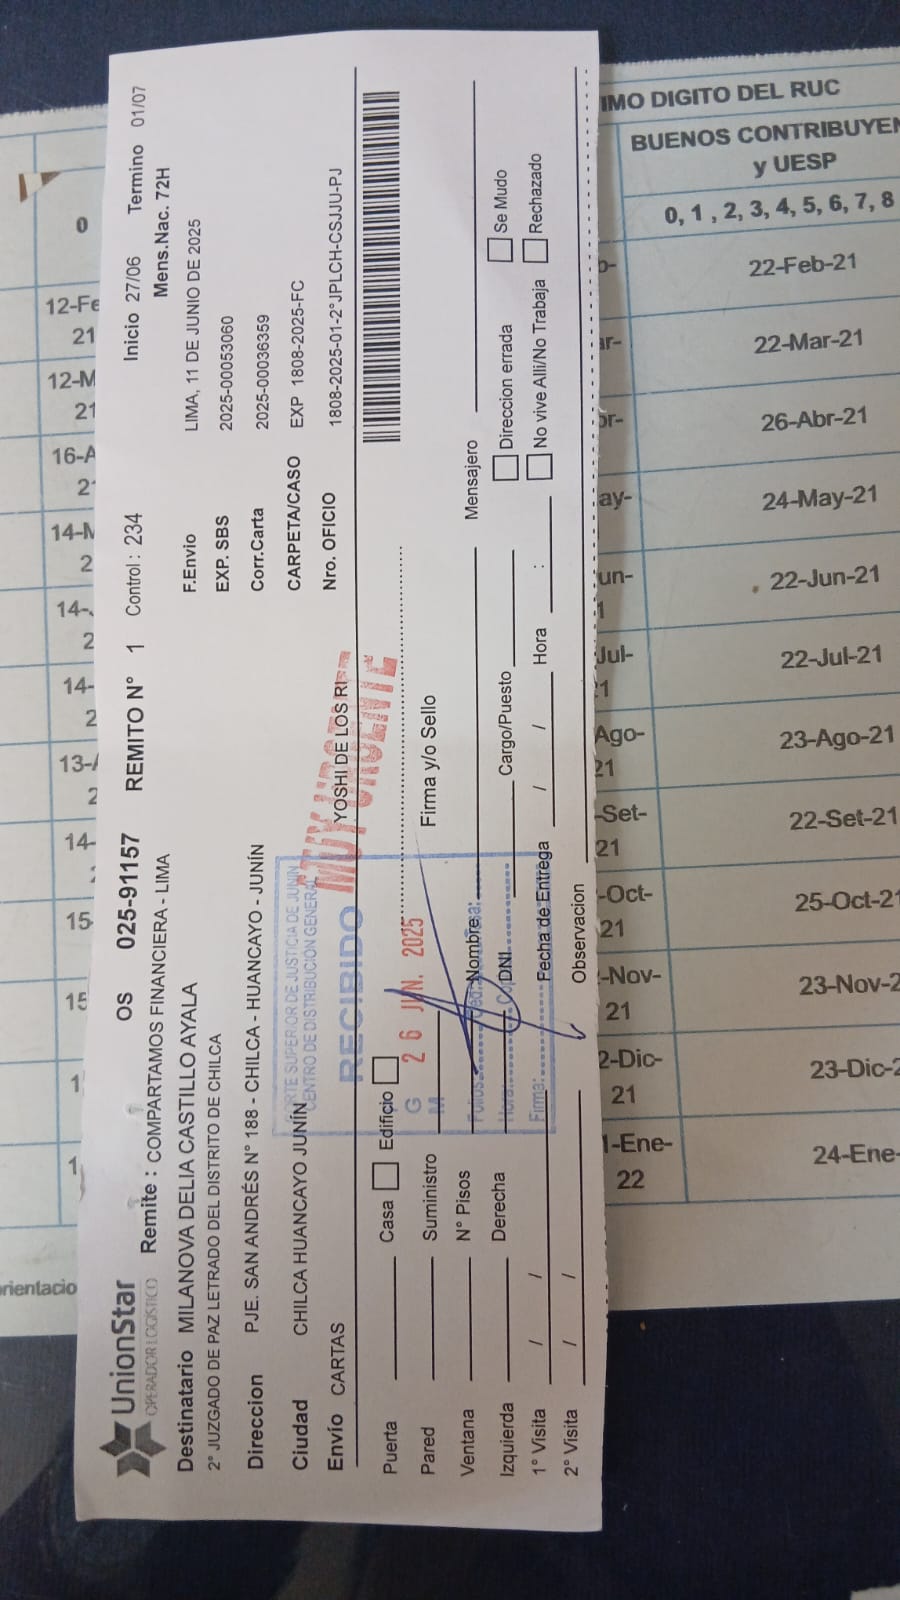 UnionStar
OPERADOR LOGÍSTICO
OS 025-91157 REMITO N° 1 Control : 234 Inicio 27/06 Termino 01/07
Remite : COMPARTAMOS FINANCIERA - LIMA Mens.Nac. 72H
Destinatario MILANOVA DELIA CASTILLO AYALA F.Envio LIMA, 11 DE JUNIO DE 2025
2° JUZGADO DE PAZ LETRADO DEL DISTRITO DE CHILCA EXP. SBS 2025-00053060
Direccion PJE. SAN ANDRÉS N° 188 - CHILCA - HUANCAYO - JUNÍN Corr.Carta 2025-00036359
Ciudad CHILCA HUANCAYO JUNÍN CARPETA/CASO EXP 1808-2025-FC
Envío CARTAS YOSHI DE LOS RI Nro. OFICIO 1808-2025-01-2°JPLCH-CSJJU-PJ
MUY URGENTE
CORTE SUPERIOR DE JUSTICIA DE JUNÍN
CENTRO DE DISTRIBUCIÓN GENERAL
RECIBIDO
26 JUN. 2025
G
M
Folios:
Hora:
Firma:
Puerta Casa Edificio
Pared Suministro Firma y/o Sello
Ventana N° Pisos Nombre: Mensajero
Izquierda Derecha DNI Cargo/Puesto Direccion errada Se Mudo
1° Visita / / Fecha de Entrega / / Hora : No vive Alli/No Trabaja Rechazado
2° Visita / / Observacion
IMO DIGITO DEL RUC
BUENOS CONTRIBUYEN
y UESP
0, 1 , 2, 3, 4, 5, 6, 7, 8
22-Feb-21
22-Mar-21
26-Abr-21
24-May-21
22-Jun-21
22-Jul-21
23-Ago-21
22-Set-21
25-Oct-21
23-Nov-2
23-Dic-2
24-Ene-
ay-
un-
Jul-
Ago-
21
-Set-
21
-Oct-
21
-Nov-
21
2-Dic-
21
1-Ene-
22
0
12-Fe
21
12-M
21
16-A
2
14-M
2
14-
2
14-
2
13-
2
14-
15-
15
1
1
rientacio